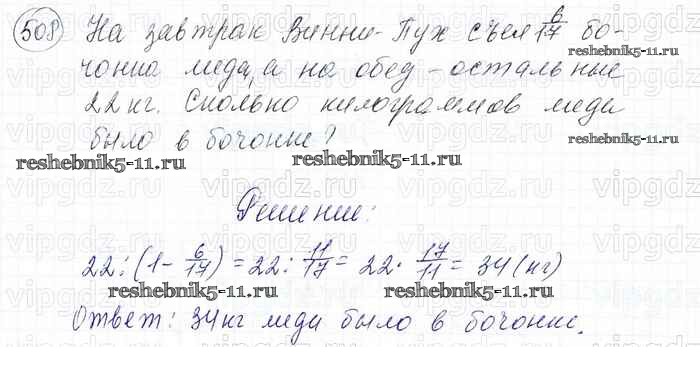 508 На завтрак Винни-Пух съел 6/17 бо-
чонка меда, а на обед - остальные
22 кг. Сколько килограммов меда
было в бочонке?
Решение:
22 : (1 - 6/17) = 22 : 11/17 = 22 · 17/11 = 34 (кг)
Ответ: 34 кг меда было в бочонке.
reshebnik5-11.ru
reshebnik5-11.ru
reshebnik5-11.ru
reshebnik5-11.ru
reshebnik5-11.ru
reshebnik5-11.ru
vipgdz.ru